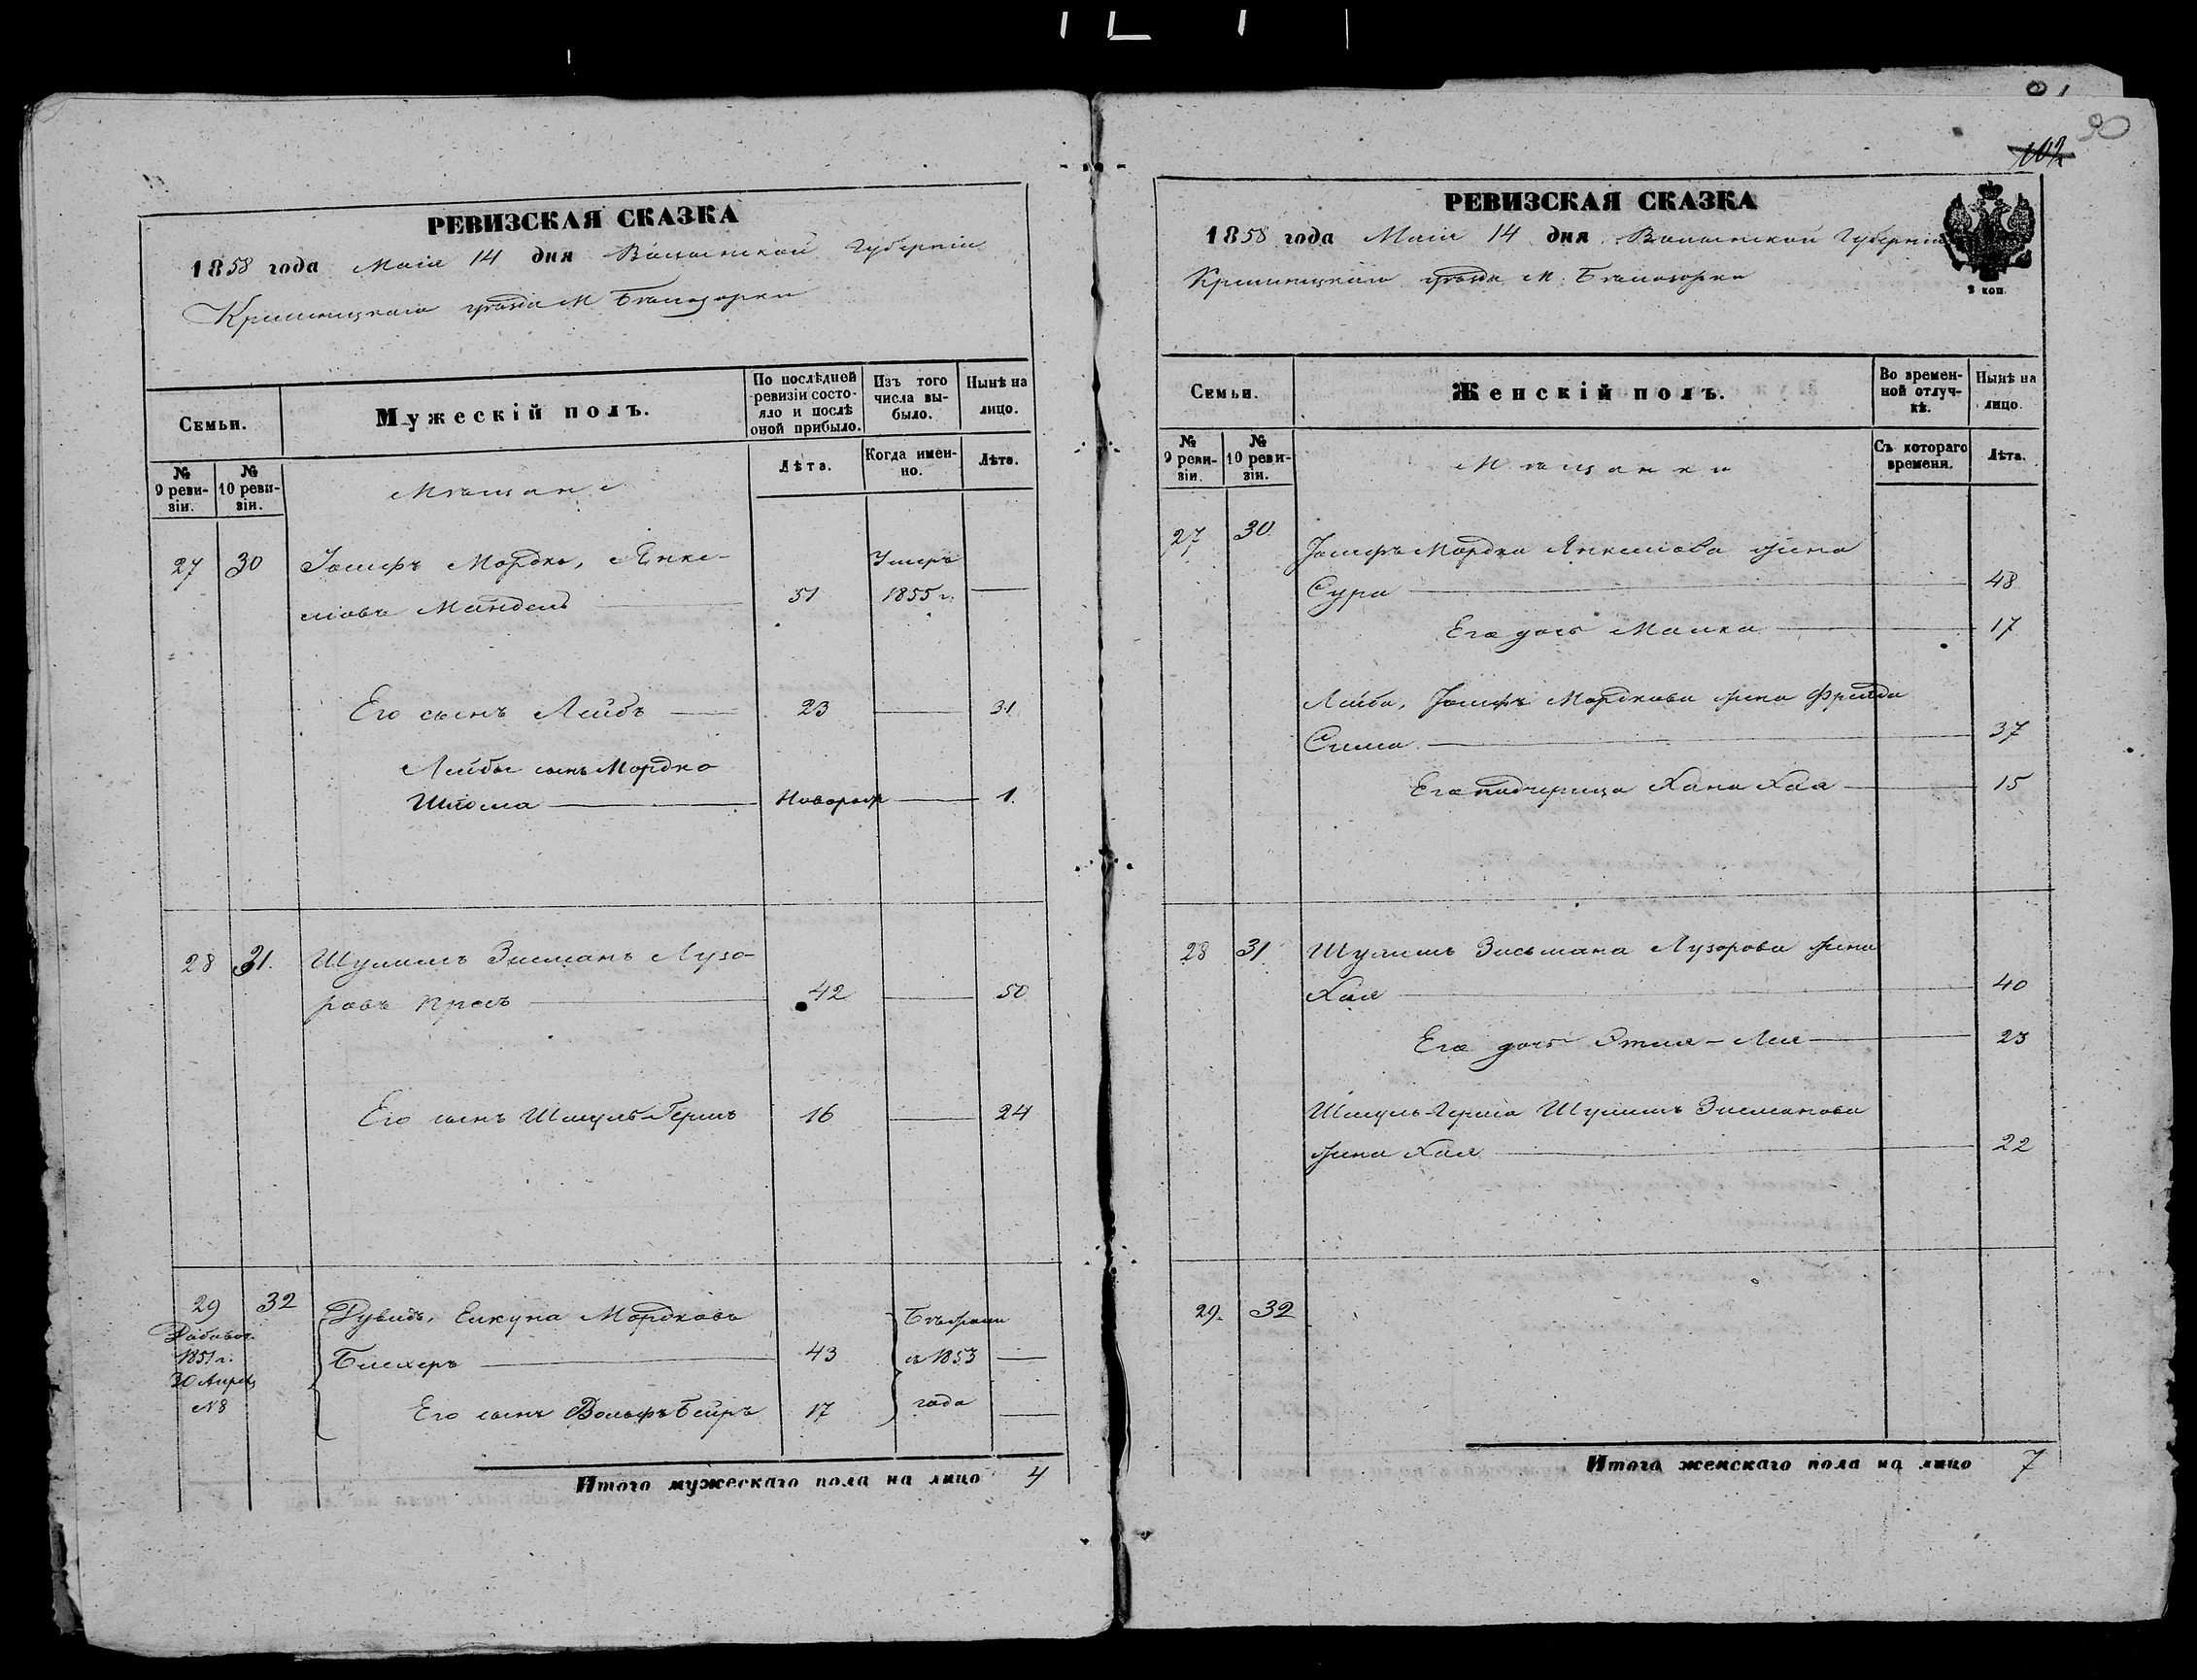 30
102
РЕВИЗСКАЯ СКАЗКА
1858 года Маія 14 дня Волынской Губерніи
Кременецкаго уѣзда М Бѣлозорки
Семьи.
Мужескій полъ.
По послѣдней ревизіи состо-
яло и послѣ
оной прибыло.
Изъ того
числа вы-
было.
Нынѣ на
лицо.
№
9 реви-
зіи.
№
10 реви-
зіи.
Мѣщане
Лѣта.
Когда имен-
но.
Лѣта.
27 30 Іосифъ Мордко, Янке- Умеръ
ліовъ Мандель 51 1855 г.
Его сынъ Лейбъ 23 31
Лейбы сынъ Мордко
Шлiома Новорож 1.
28 31. Шулимъ Зисманъ Лузо-
ровъ Кроль 42 50
Его сынъ Шмуль-Гершъ 16 24
29 32 Рувидъ, Еикуна Мордковъ Бѣжали
Добавоч.
1851 г. Блехеръ 43 съ 1853
30 Апрѣл
№ 8 Его сынъ Вольфъ Беиръ 17 года
Итого мужескаго пола на лицо 4
РЕВИЗСКАЯ СКАЗКА
1858 года Маія 14 дня Волынской Губерніи
Кременецкаго уѣзда М. Бѣлозорки
2 коп.
Семьи.
Женскій полъ.
Во времен-
ной отлуч-
кѣ.
Нынѣ на
лицо.
№
9 реви-
зіи.
№
10 реви-
зіи.
Мѣщанки
Съ котораго
времени.
Лѣта.
27 30. Іосифъ Мордка Янкеліова жена
Сура 48
Его дочь Малка 17
Лейба, Іосифъ Мордкова жена Фрейда
Сима 37
Его падчерица Хана Хая 15
28 31. Шулимъ Зисьмана Лузорова жена
Хая 40
Его дочь Этля-Лея 23
Шмуль-Герша Шулимъ Зисманова
жена Хая 22
29. 32
Итого женскаго пола на лицо 7